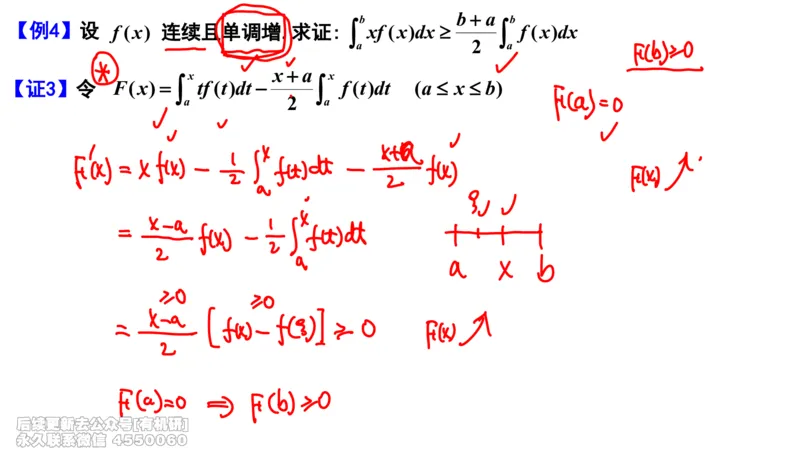 【例4】设 f(x) 连续且单调增. 求证: ∫_a^b xf(x)dx ≥ (b+a)/2 ∫_a^b f(x)dx
F(b)≥0
【证3】令 F(x)=∫_a^x tf(t)dt − (x+a)/2 ∫_a^x f(t)dt (a≤x≤b)
F(a)=0
F'(x) = x f(x) − 1/2 ∫_a^x f(t)dt − (x+a)/2 f(x)
F(x) ↗
= (x−a)/2 f(x) − 1/2 ∫_a^x f(t)dt
ξ
a x b
≥0 ≥0
= (x−a)/2 [f(x) − f(ξ)] ≥ 0 F(x) ↗
F(a)=0 ⇒ F(b)≥0
后续更新去公众号[有机研]
永久联系微信 4550060